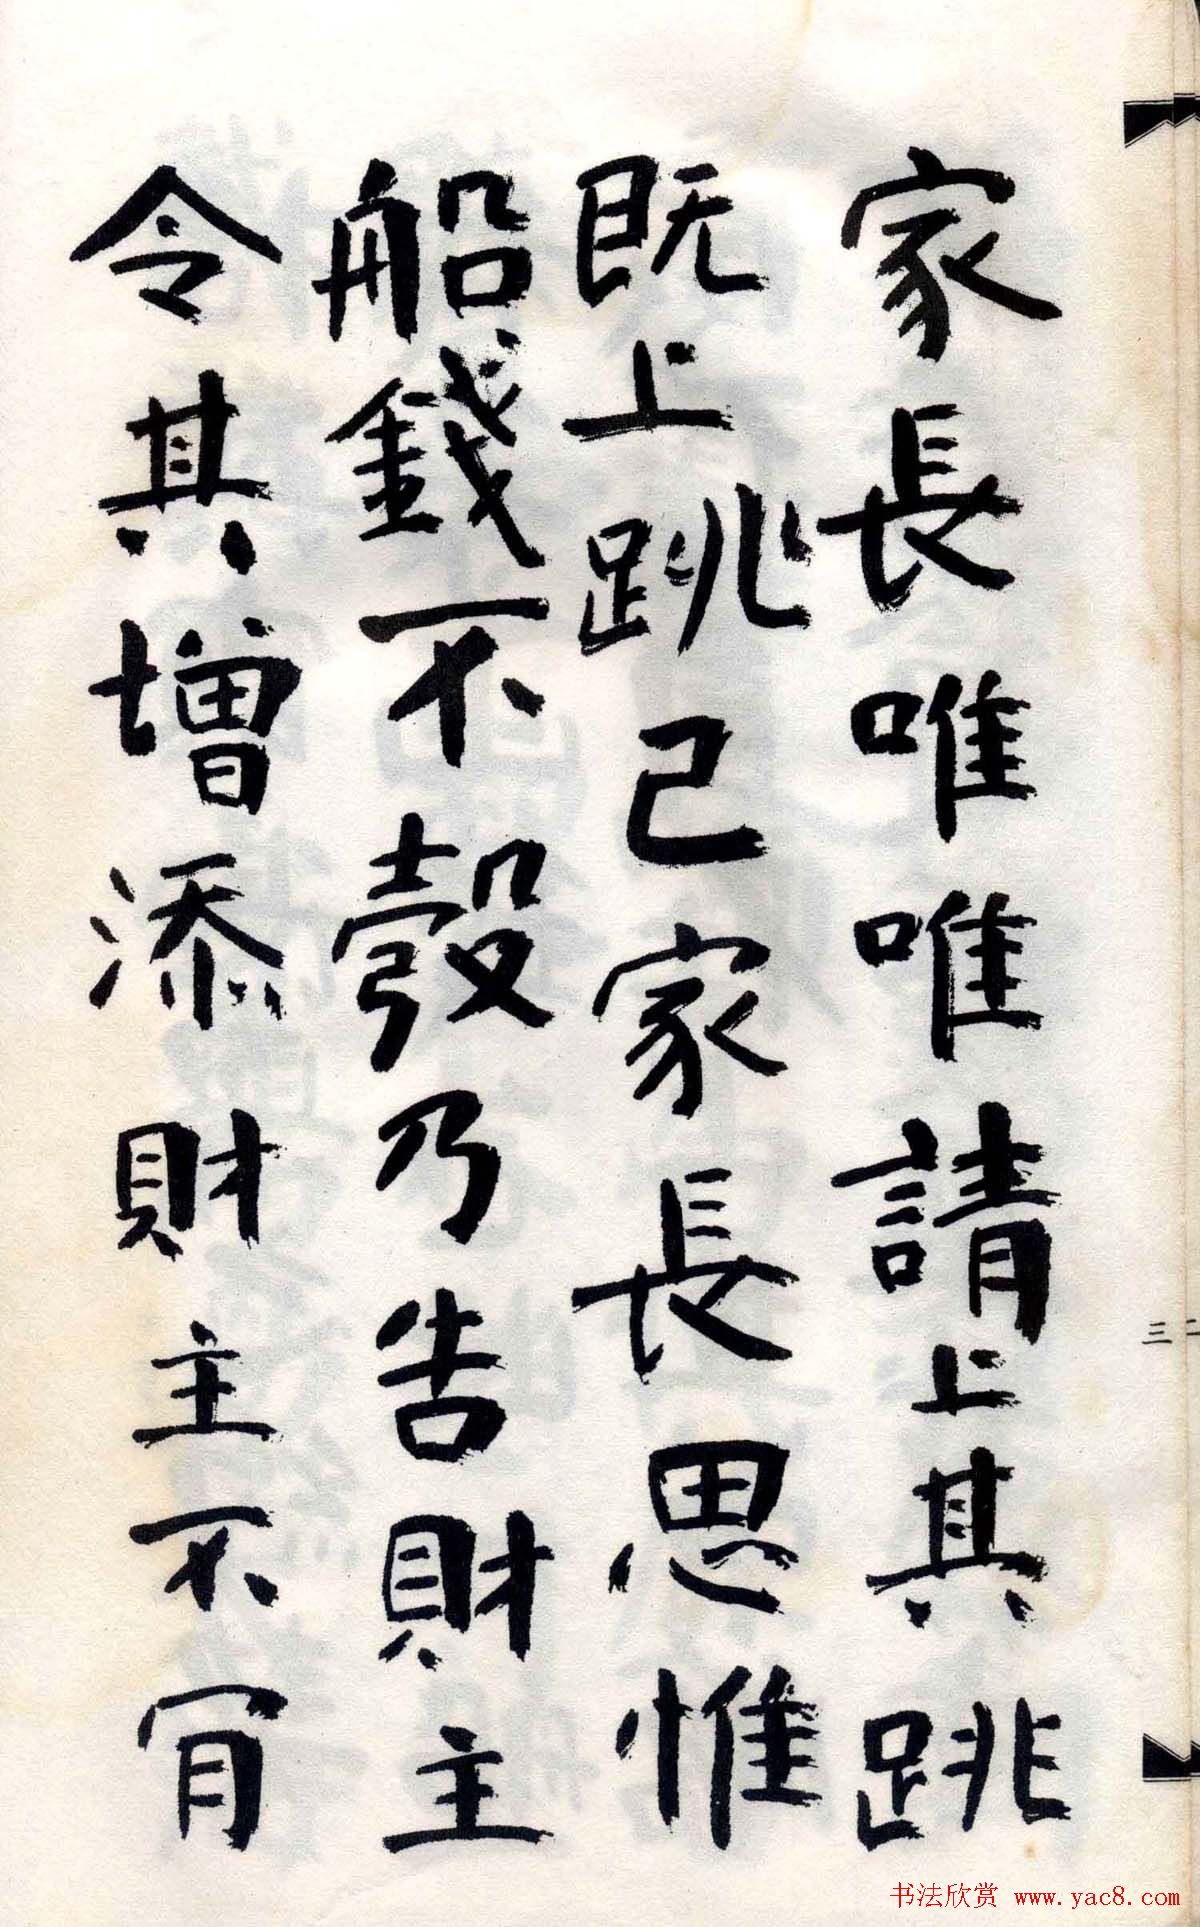 家長唯唯請上其跳
既上跳己家長思惟
船錢不彀乃告財主
令其增添財主不肯
三
書法欣赏 www.yac8.com